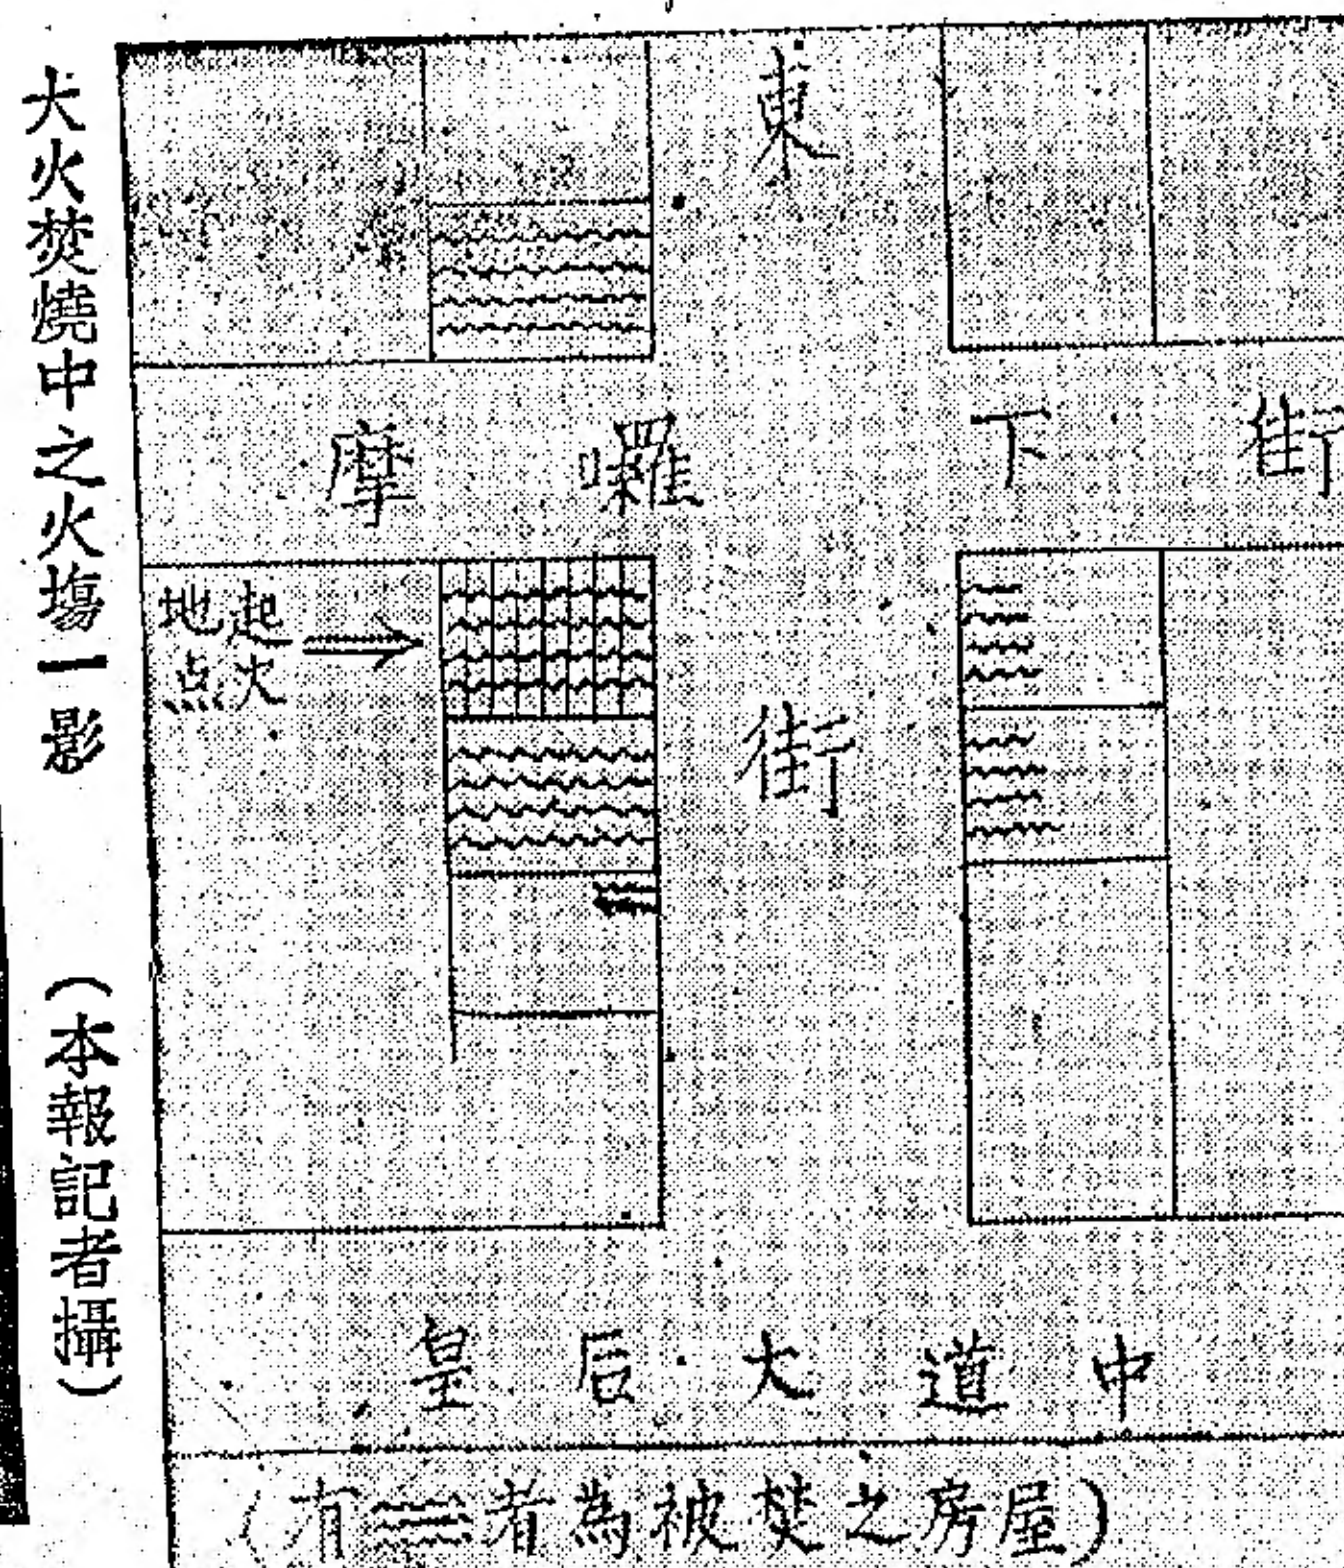 大火焚燒中之火塲一影　（本報記者攝）
東
街
摩囉下街
起火
地点
皇后大道中
（有者為被焚之房屋）